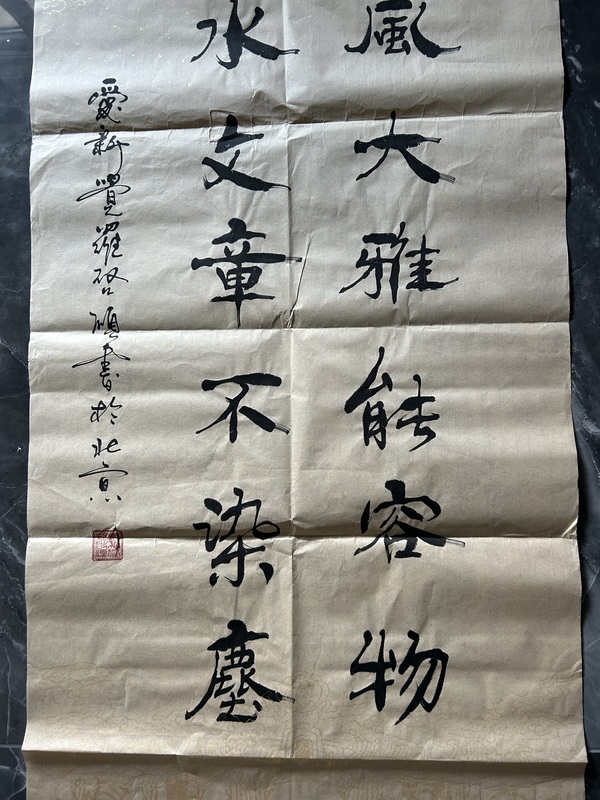 風大雅能容物
水文章不染塵
愛新覺羅啓碩書於北京